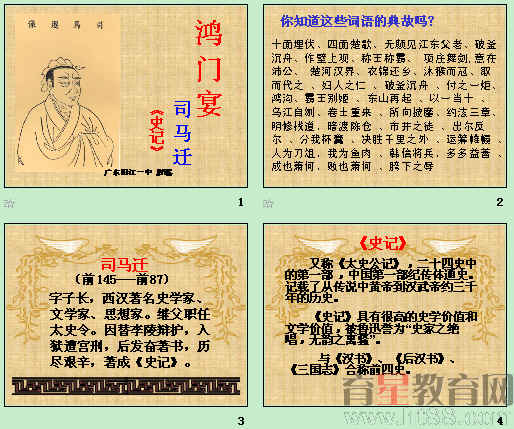 像遷馬司
鸿门宴
司马迁
《史记》
广东阳江一中
1
你知道这些词语的典故吗?
十面埋伏、四面楚歌、无颜见江东父老、破釜
沉舟、作壁上观、称王称霸、 项庄舞剑,意在
沛公、 楚河汉界、衣锦还乡、沐猴而冠、取
而代之 、妇人之仁 、破釜沉舟 、付之一炬、
鸿沟、霸王别姬 、东山再起 、以一当十 、
乌江自刎、卷土重来 、所向披靡、约法三章、
明修栈道,暗渡陈仓 、市井之徒 、出尔反
尔 、分我杯羹 、决胜千里之外 、运筹帷幄 、
人为刀俎,我为鱼肉 、韩信将兵,多多益善 、
成也萧何,败也萧何 、胯下之辱
2
司马迁
(前145——前87)
字子长,西汉著名史学家、
文学家、思想家。继父职任
太史令。因替李陵辩护,入
狱遭宫刑,后发奋著书,历
尽艰辛,著成《史记》。
3
《史记》
又称《太史公记》,二十四史中
的第一部,中国第一部纪传体通史。
记载了从传说中黄帝到汉武帝约三千
年的历史。
《史记》具有很高的史学价值和
文学价值,被鲁迅誉为“史家之绝
唱,无韵之离骚”。
与《汉书》、《后汉书》、
《三国志》合称前四史。
4
育星教育网
www.ht88.com